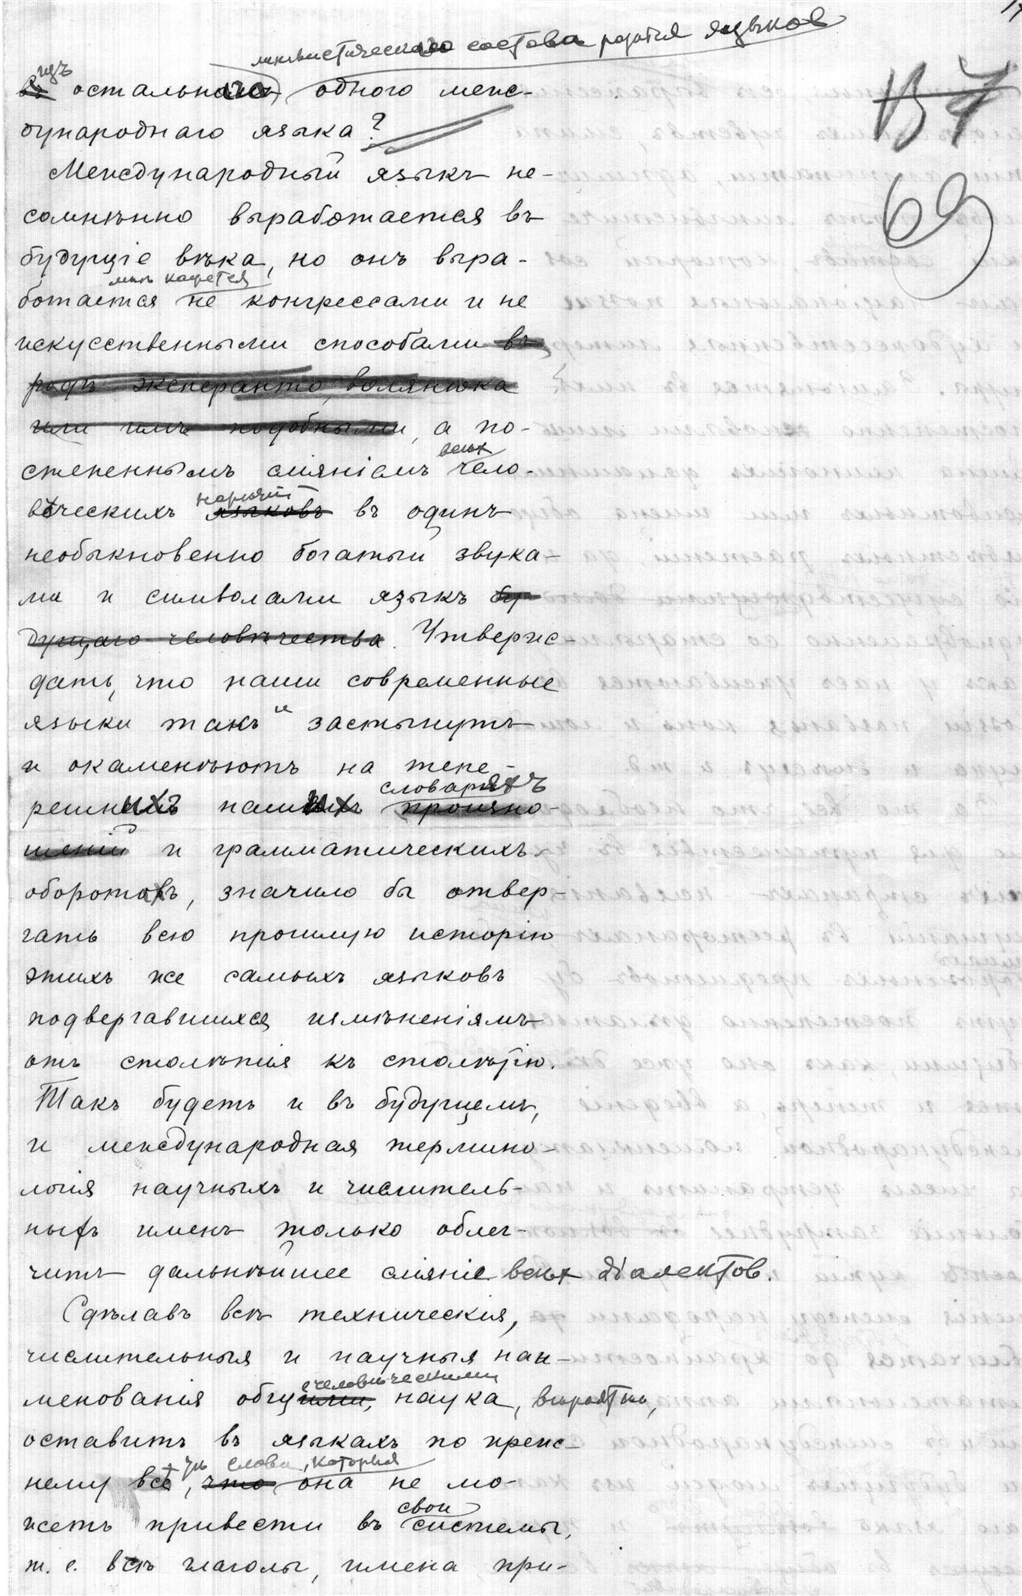 лингвистическаго состава родятся языков
изъ
остального одного меж-
дународнаго языка?
137
69
Международный языкъ не-
сомнѣнно выработается въ
будущіе вѣка, но онъ выра-
мнѣ кажется
ботается не конгрессами и не
искусственными способами въ
родѣ эксперанто, волянюка
или имъ подобными, а по-
всѣх
степеннымъ сліяніемъ чело-
нарѣчій
вѣческихъ языковъ въ одинъ
необыкновенно богатый звука-
ми и символами языкъ бу-
дущаго человѣчества. Утверж-
дать, что наши современные
языки такъ и застынутъ
и окаменѣютъ на тепе-
словаряхъ
решнихъ нашихъ произно-
шеній и грамматическихъ
оборотахъ, значило бы отвер-
гать всю прошлую исторію
этихъ же самыхъ языковъ
подвергавшихся измѣненіямъ
отъ столѣтія къ столѣтію.
Такъ будетъ и въ будущемъ,
и международная термино-
логія научныхъ и числитель-
ныхъ именъ только облег-
читъ дальнѣйшее сліяніе всѣх діалектов.
Сдѣлавъ всѣ техническія,
числительныя и научныя наи-
человѣческими
менованія общими, наука, вѣроятно,
оставитъ въ языкахъ по преж-
слова, которыя
нему всѣ, что она не мо-
свои
жетъ привести въ системы,
т. е. всѣ глаголы, имена при-